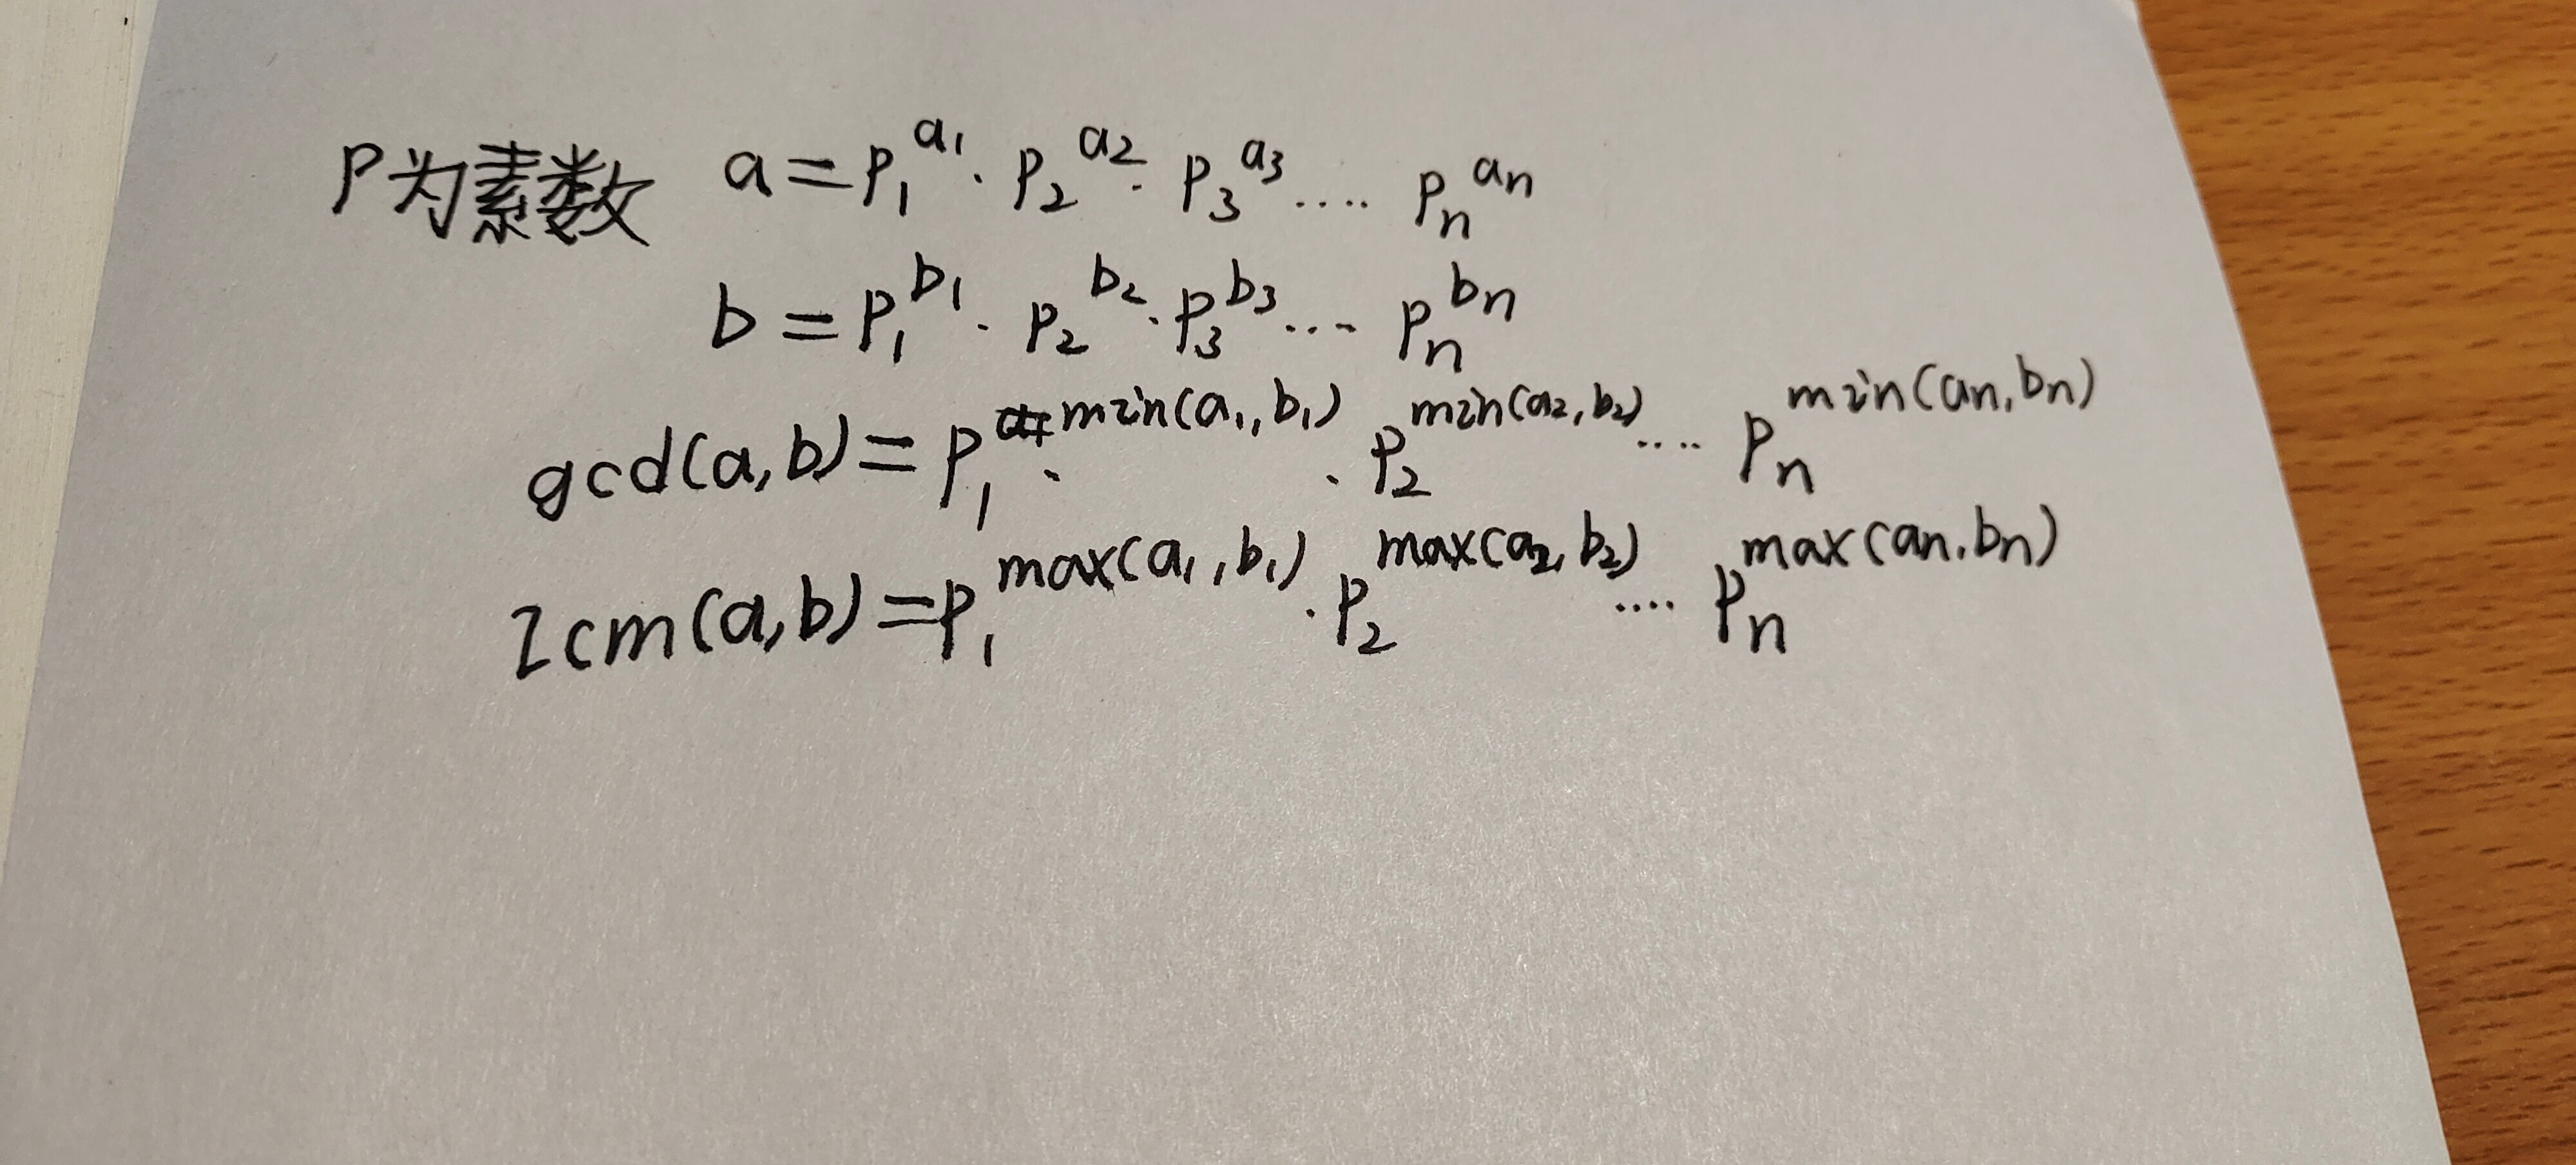 P为素数 a=p₁^a₁·p₂^a₂·p₃^a₃····pₙ^aₙ
b=p₁^b₁·p₂^b₂·p₃^b₃····pₙ^bₙ
gcd(a,b)=p₁^min(a₁,b₁)·p₂^min(a₂,b₂)····pₙ^min(aₙ,bₙ)
lcm(a,b)=p₁^max(a₁,b₁)·p₂^max(a₂,b₂)····pₙ^max(aₙ,bₙ)